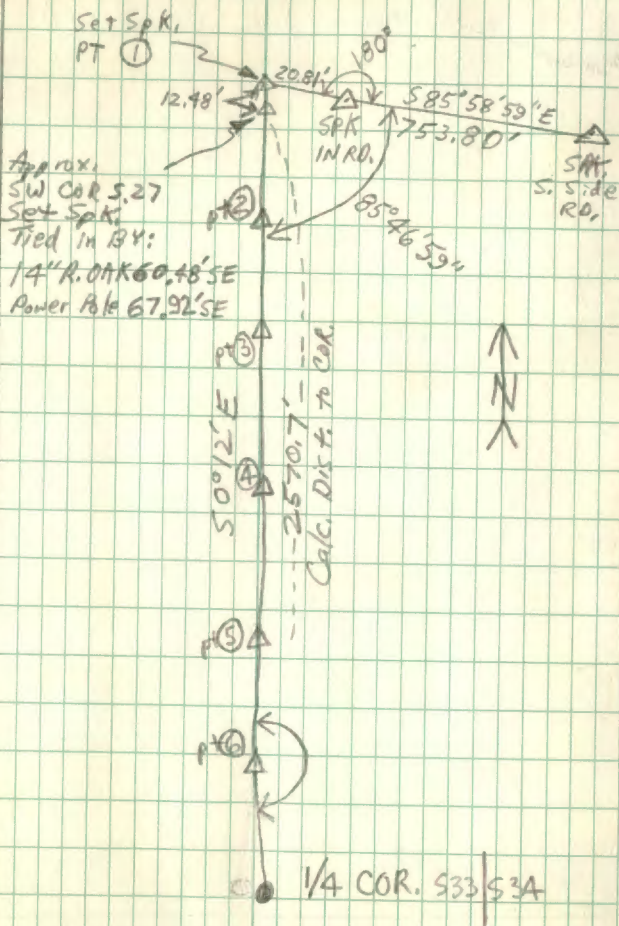 Set Spk.
PT ①
20.81'
180°
12.48'
S85°58'59"E
753.80'
SPK
IN RD.
SPK.
S. Side
RD.
Approx.
SW COR S.27
Set Spk.
Tied in BY:
14" R. OAK 60.48' SE
Power Pole 67.92' SE
pt②
85°46'59"
pt③
N
S0°12'E
④
2570.7'
Calc. Dist. to COR.
pt⑤
pt⑥
1/4 COR. S33|S34